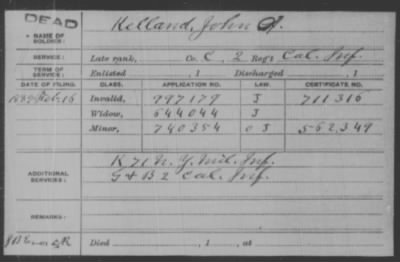 DEAD
NAME OF SOLDIER: Kelland, John A.
SERVICE: Late rank, Co. C, 2 Reg't Cal. Inf.
TERM OF SERVICE: Enlisted , 1 Discharged , 1
DATE OF FILING. CLASS. APPLICATION NO. LAW. CERTIFICATE NO.
1889 Feb. 16 Invalid, 797179 J 711316
Widow, 644044 J
Minor, 740354 O J 562,349
ADDITIONAL SERVICES: K 71 N. Y. Mil. Inf.
G & B 2 Cal. Inf.
REMARKS:
Died , 1 , at